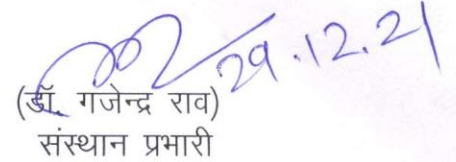 29.12.21
(डॉ. गजेन्द्र राव)
संस्थान प्रभारी